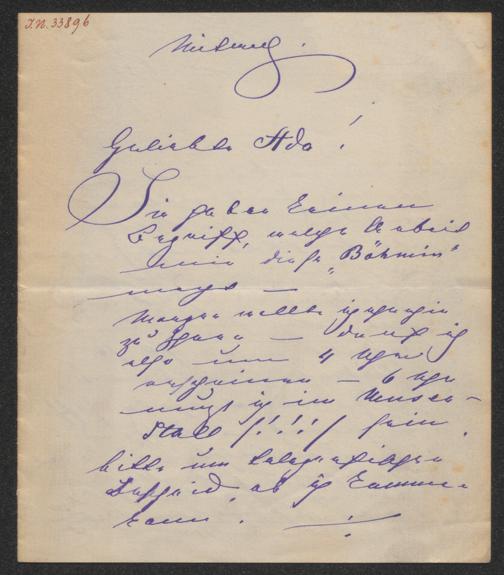 I.N. 33896
Mittwoch.
Geliebte Ada!
Sie haben keinen
Begriff, welche Arbeit
mir diese „Böhmin"
macht —
Morgen wollte ich zu
zu Ihnen — darf ich
also um 4 Uhr
erscheinen — 6 Uhr
muß ich im
Stall /!!!/ sein.
bitte um telegrafischen
Bescheid, ob ich kommen
kann.